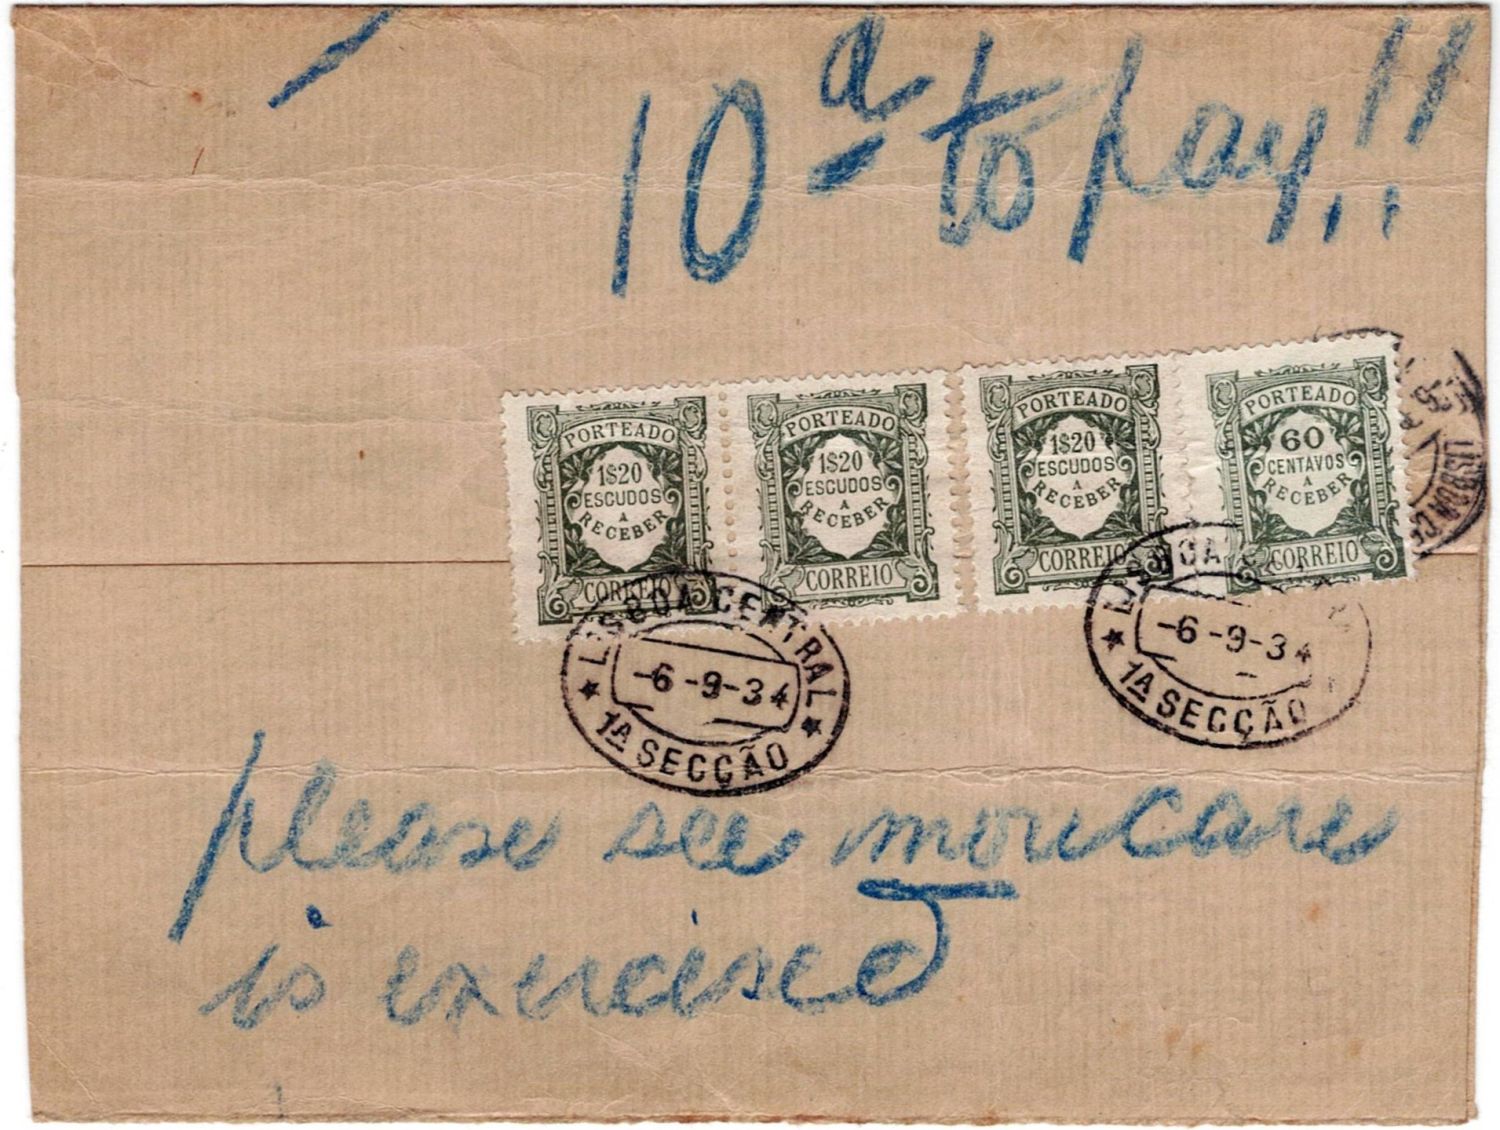 10d to pay!!
PORTEADO
1$20
ESCUDOS
A
RECEBER
CORREIO
PORTEADO
1$20
ESCUDOS
A
RECEBER
CORREIO
PORTEADO
1$20
ESCUDOS
A
RECEBER
CORREIO
PORTEADO
60
CENTAVOS
A
RECEBER
CORREIO
LISBOA CENTRAL
-6-9-34
1A SECÇÃO
LISBOA
-6-9-34
1A SECÇÃO
LISBOA CE
please see more care
is exercised